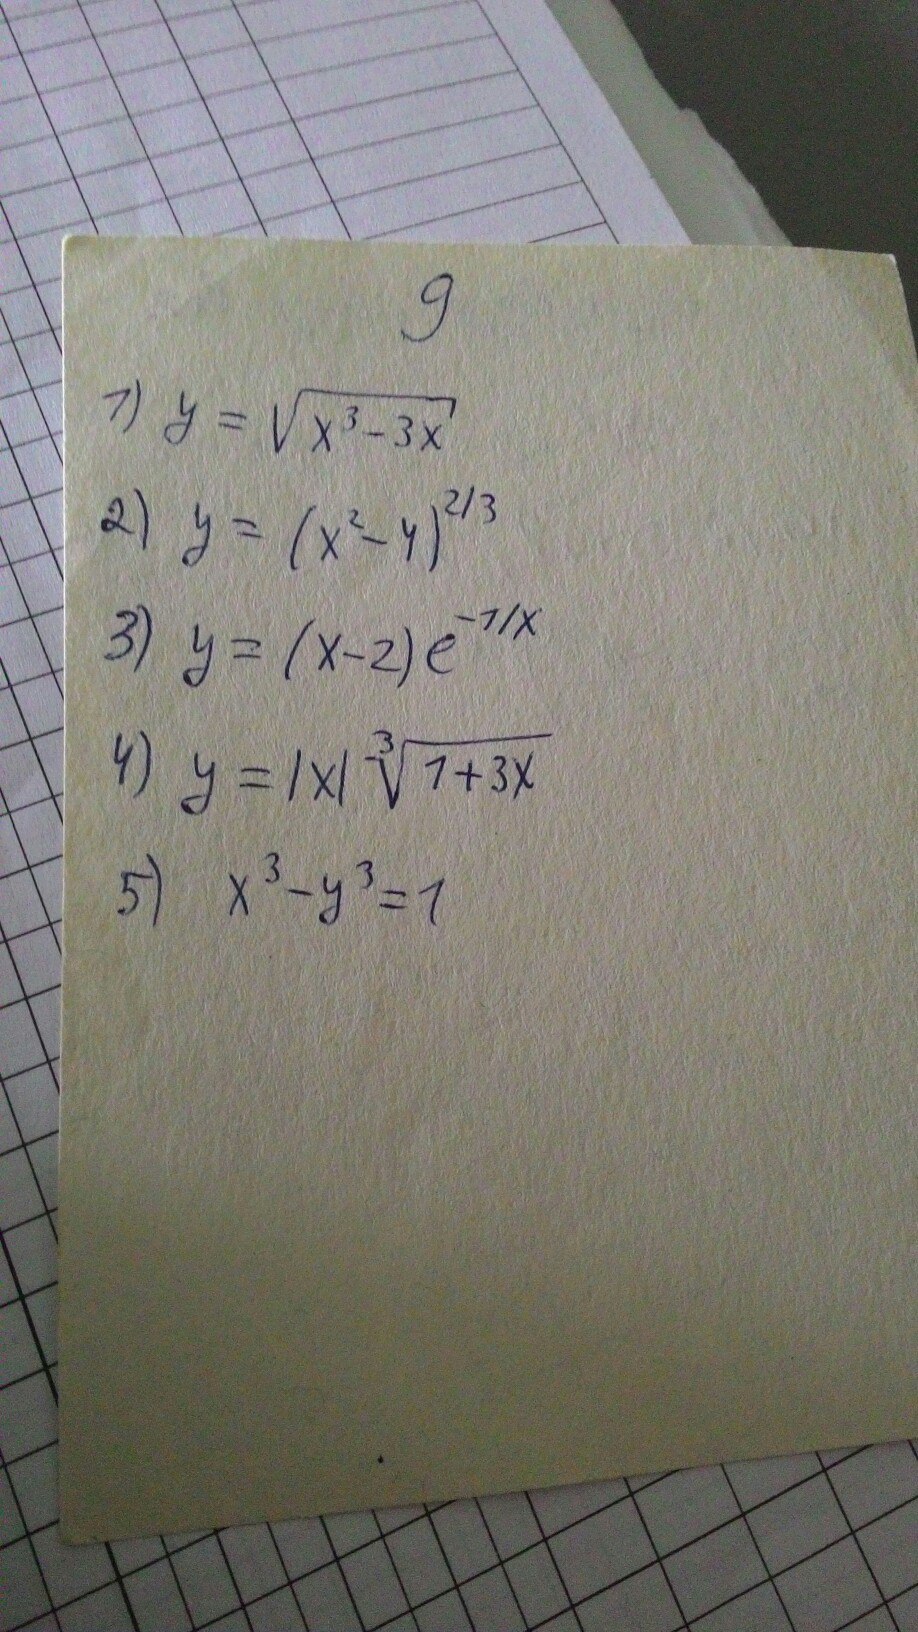 9
1) y = √(x³-3x)
2) y = (x²-4)^2/3
3) y = (x-2)e^-1/x
4) y = |x| ∛(1+3x)
5) x³-y³=1